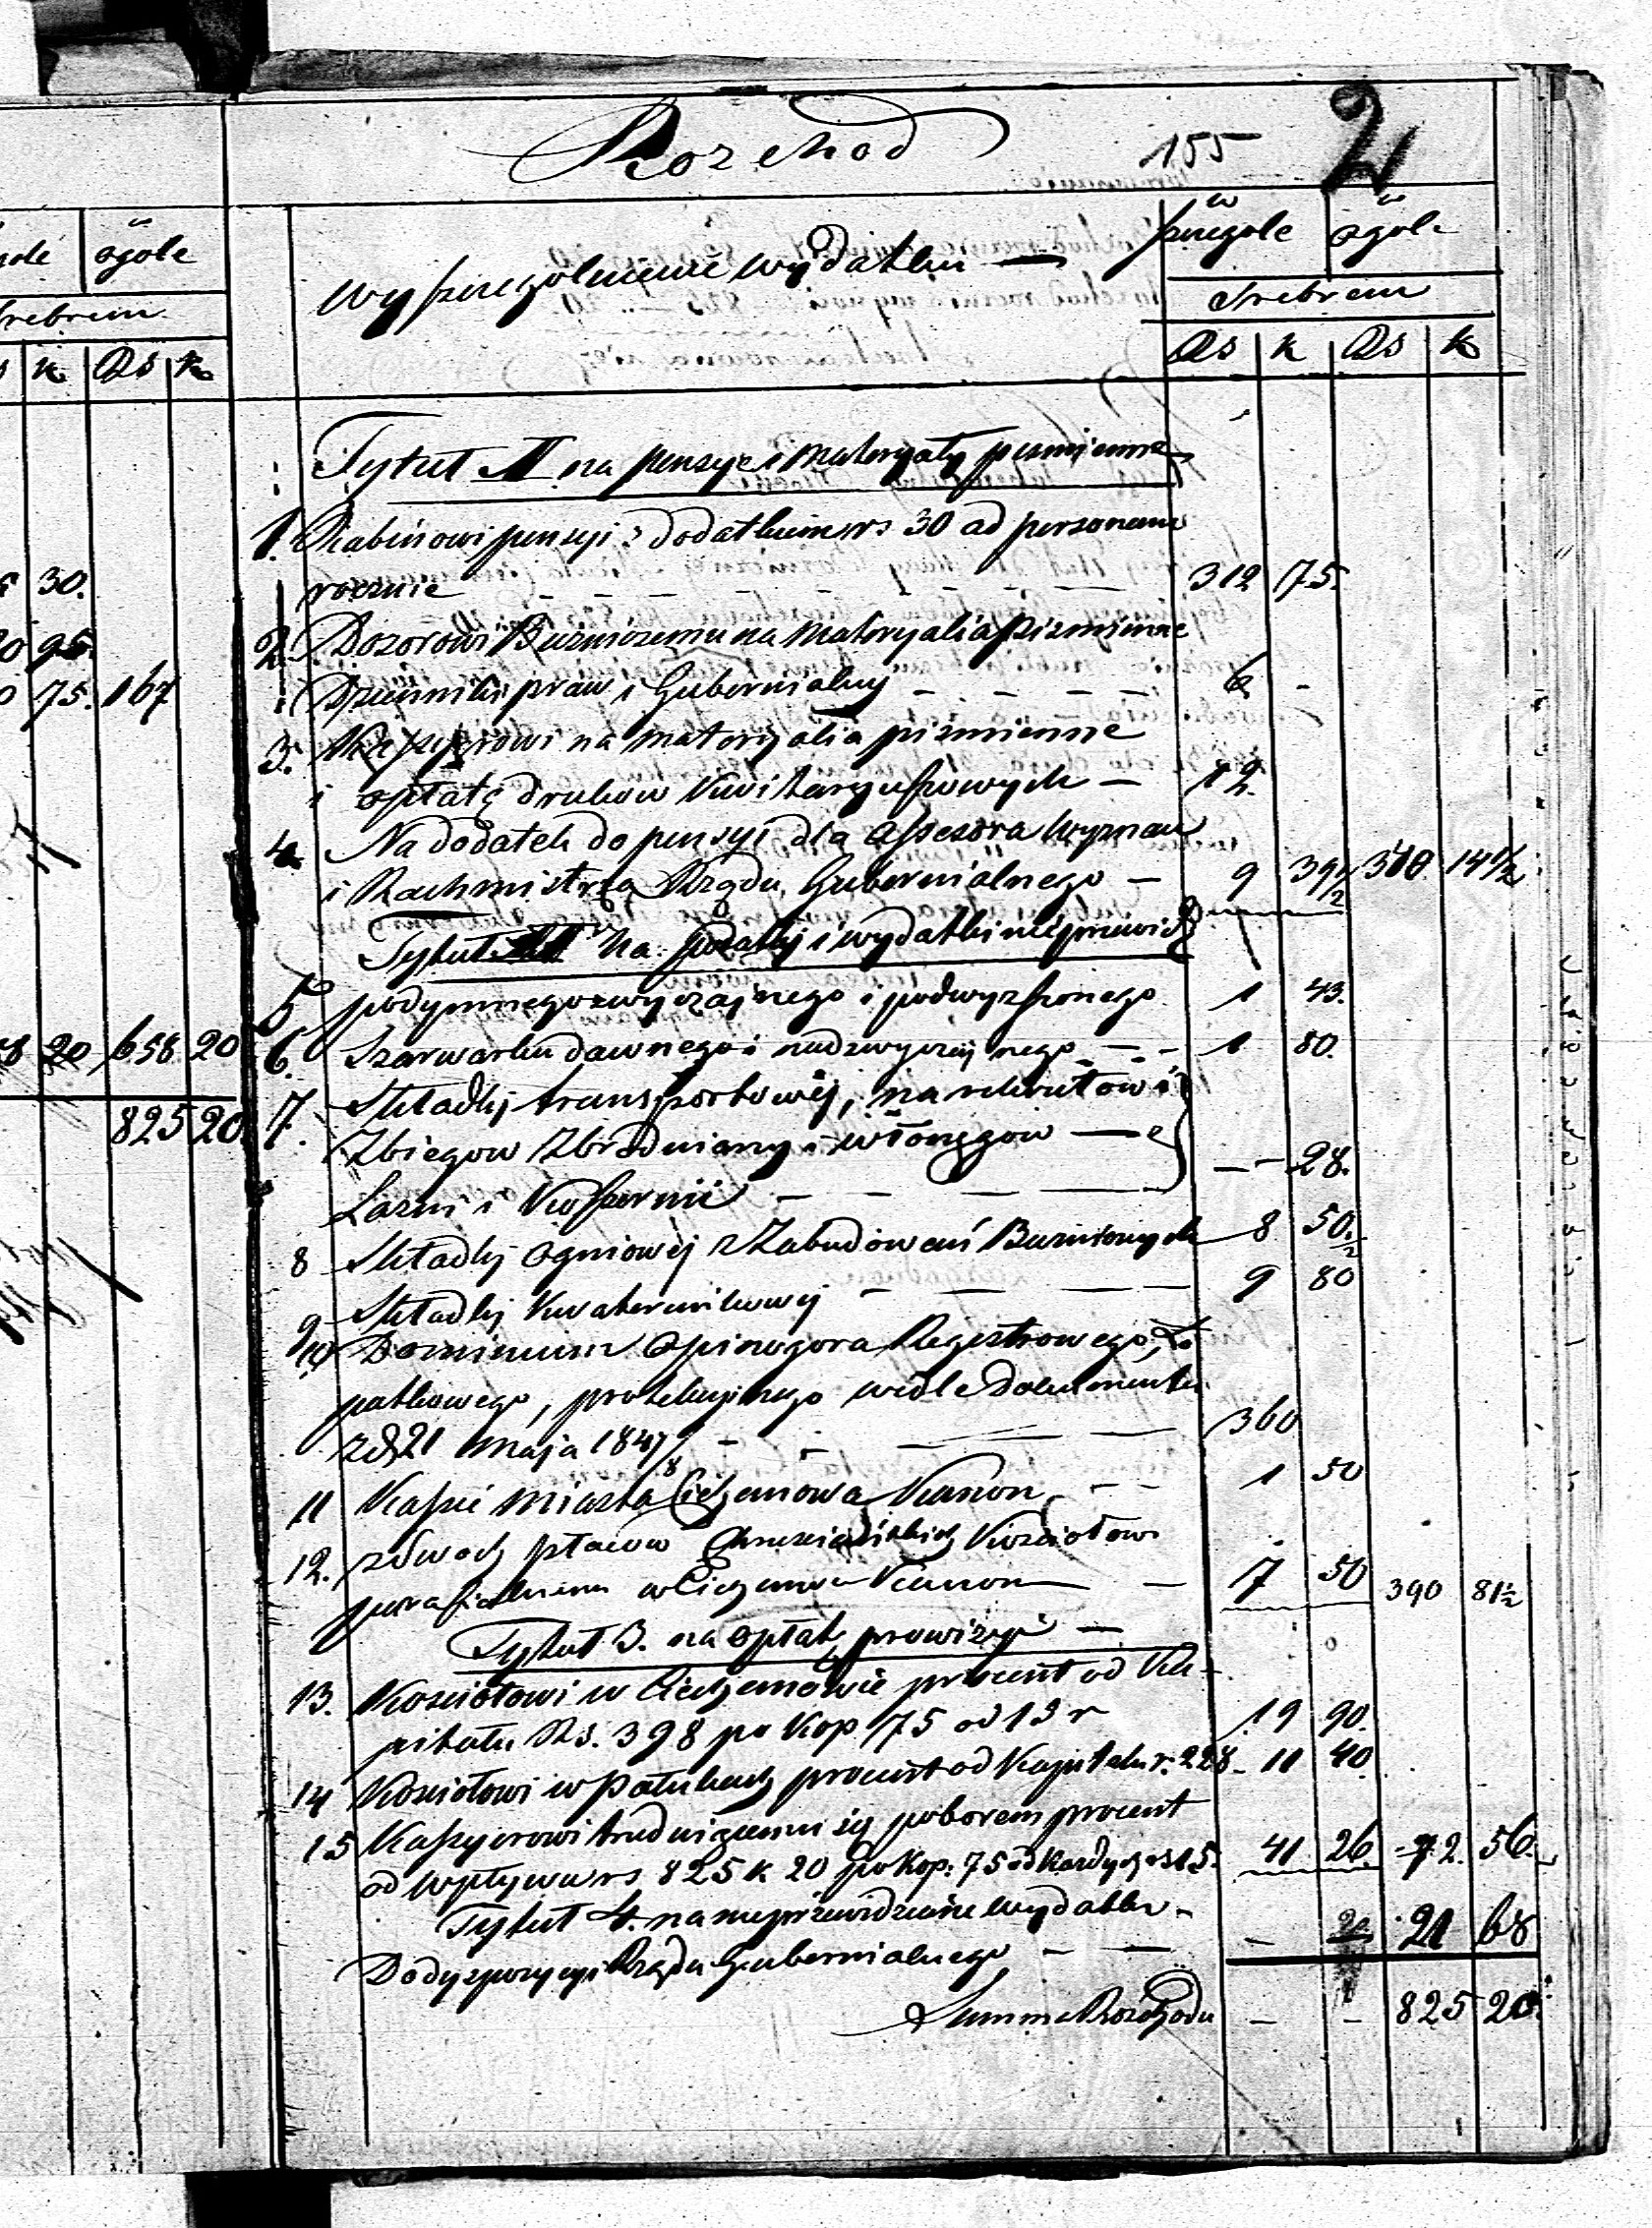 Rozchod
155
2
w w
szczegole ogole
Wyszczegolnienie wydatku —
Srebrem
Rs k Rs k
gole ogole
Srebrem
k Rs k
Tytuł II na pensye i materyały pismienne
1. Rabinowi pensyi z dodatkiem rs 30 ad personam
rocznie — — — 312 75.
2. Dozorowi Bużniczemu na Materyalia piśmienne
Dzienniki praw i Gubernialny — — — 6 -
3. Kassyerowi na materyalia piśmienne
i opłatę drukow Kwitaryuszowych — 12.
4. Na dodatek do pensyi dla Assesora Wyznan
i Rachmistrza Rządu Gubernialnego — 9 39 1/2 340 14 1/2
Tytuł na podatki i wydatki
5 podymnego zwyczajnego i podwyższonego 1 43.
6. Szarwarku dawnego i nadzwyczajnego — - 1 80.
7. Składki transportowej, na rekrutow i
Zbiegow Zbrodniarzy i włoczęgow —
Lazni i — — — — - 28.
8 Składki ogniowej z Zabudowań Bużnicznych 8 50 1/2
9 Składki Kwaterunkowej — — — 9 80
10 Dominium Opinogora Regestrowego,
patkowego, protekcyjnego wedle Dokumentu
z d 21 Maja 1847/8 — - — — 360
11 Kassie Miasta Ciechanowa Kanon - - 1 50
12. z dwoch placow Chrzescianskich Kosciołowi
parafialnemu w Ciechanowie Kanon — — 7 50 390 81 1/2
Tytuł 3. na opłatę prowizyi —
13. Kosciołowi w Ciechanowie procent od Ka-
pitału Rs. 398 po Kop 75 od 15 r 19 90.
14 Kosciołowi w Pałukach procent od Kapitału r. 228 - 11 40
15 Kassyerowi trudniącemu się poborem procent
od wpływu rs 825 k 20 po Kop: 75 od Kazdych rs 15. 41 26. 72. 56.
Tytuł 4. na nieprzewidziane wydatki -
Do dyspozycyi Rządu Gubernialnego — — - 21 68
Summa Rozchodu - - 825 20.
30.
95.
75. 167
20 658 20
825 20.